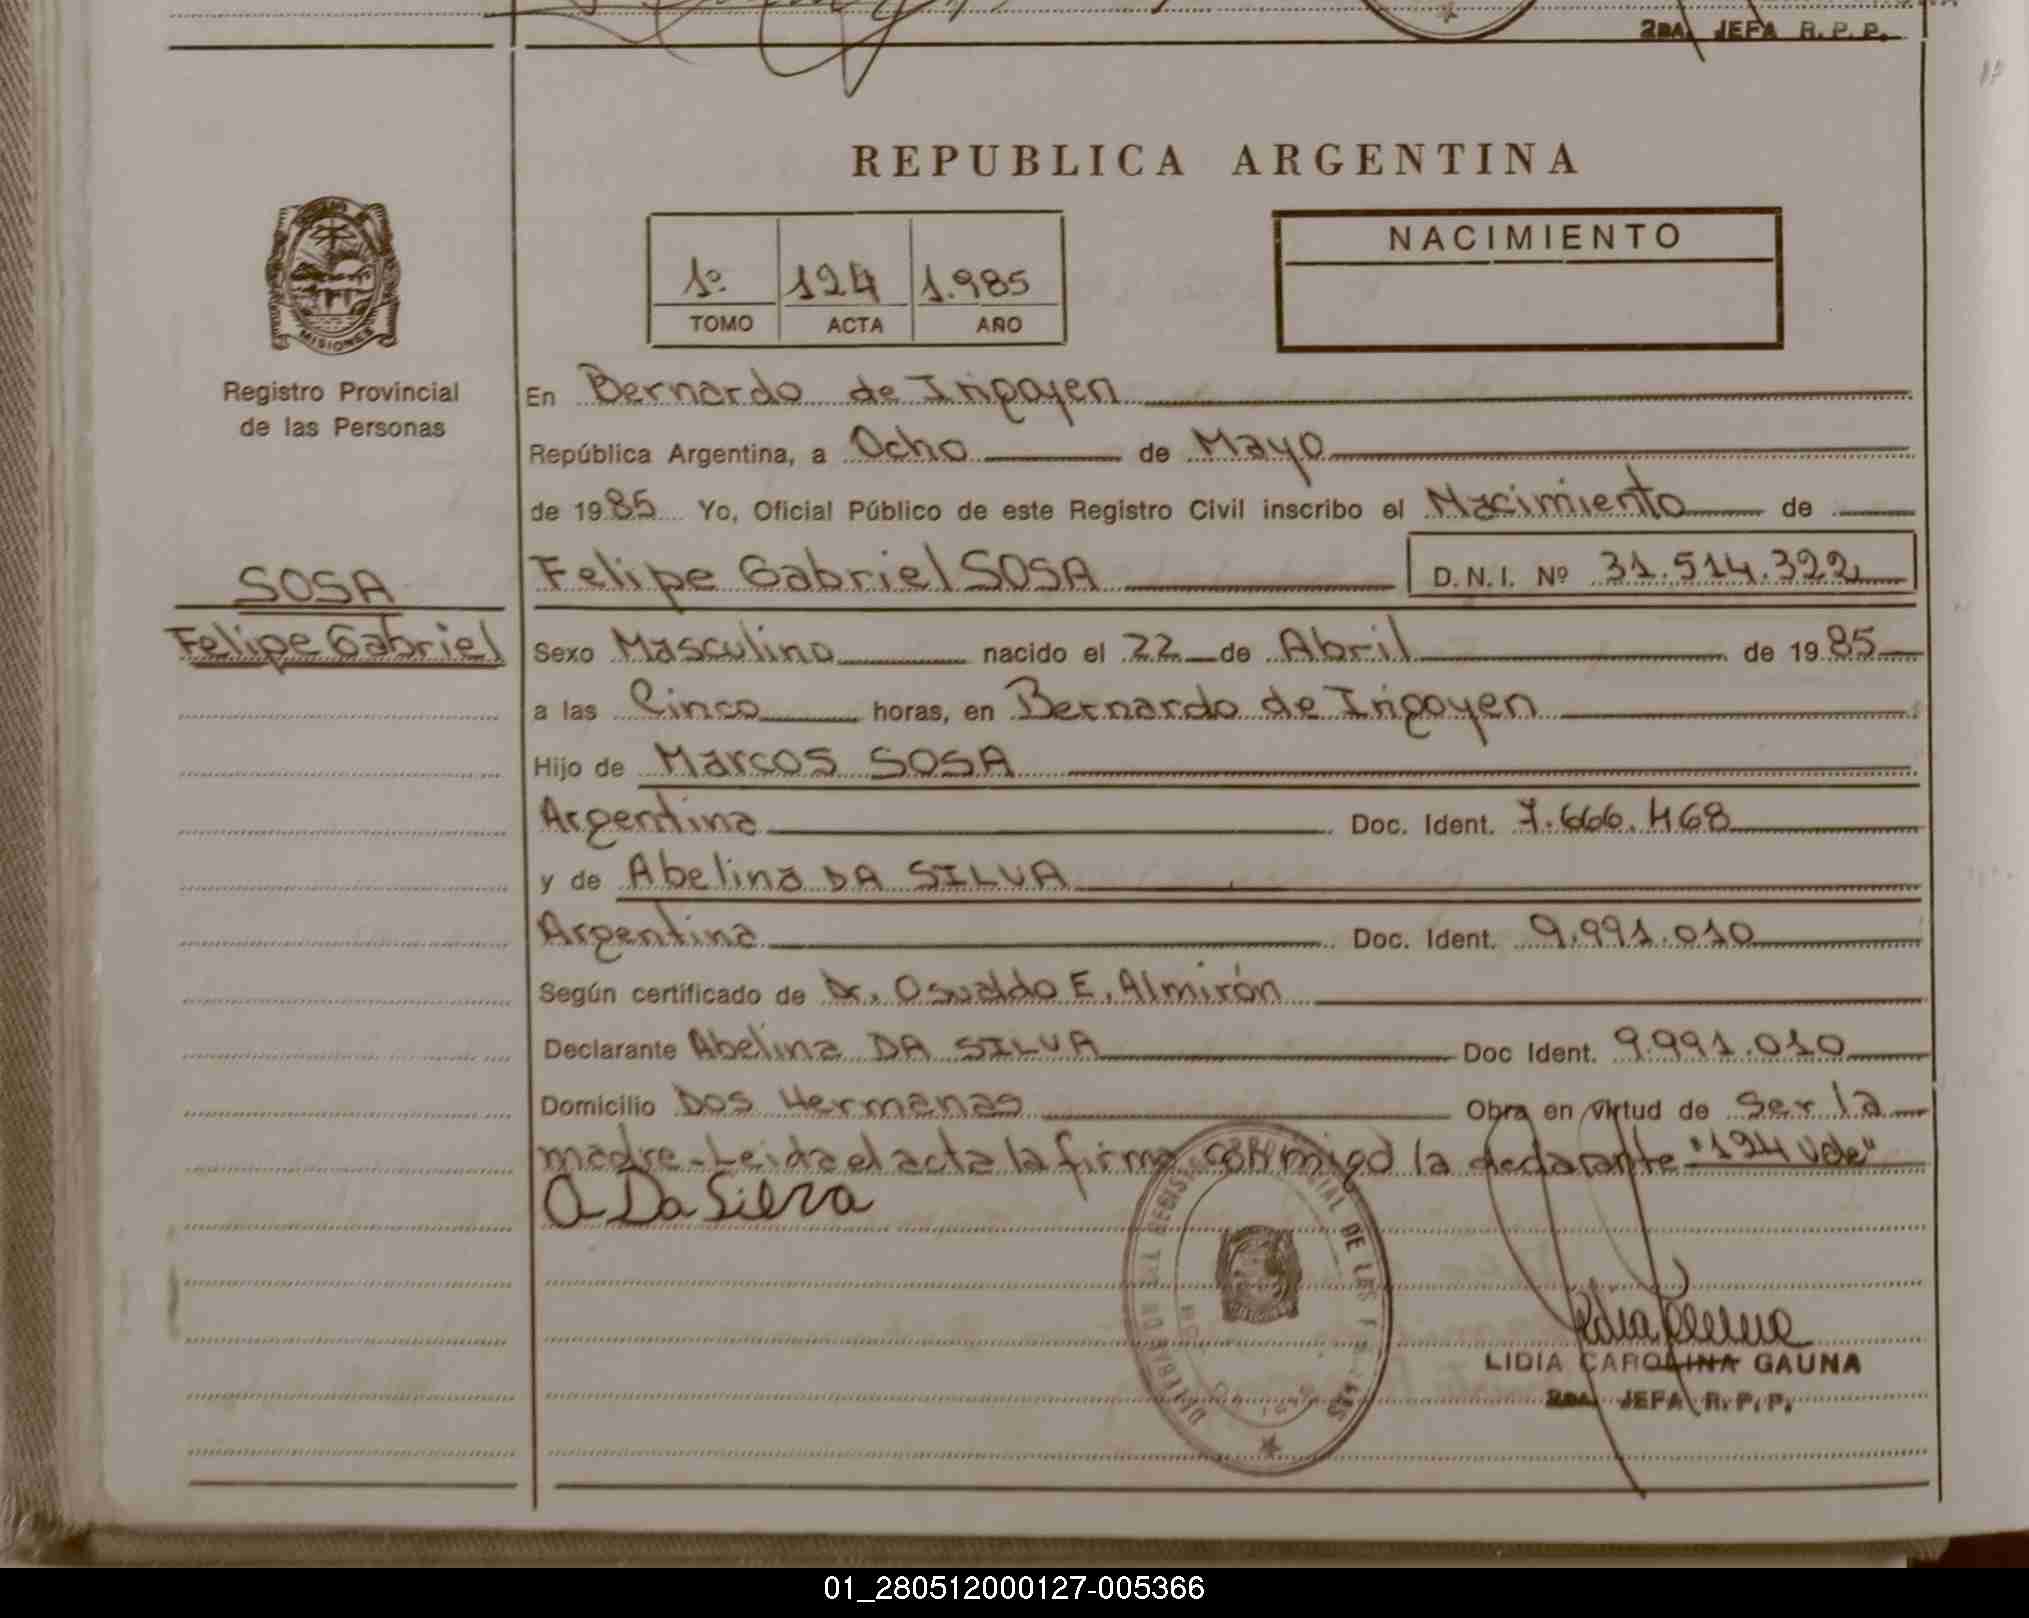 2DA. JEFA R. P. P.
REPUBLICA ARGENTINA
1º 124 1.985
TOMO ACTA AÑO
NACIMIENTO
MISIONES
Registro Provincial
de las Personas
En Bernardo de Irigoyen
República Argentina, a Ocho de Mayo
de 1985 Yo, Oficial Público de este Registro Civil inscribo el Nacimiento de
SOSA
Felipe Gabriel
Felipe Gabriel SOSA D.N.I. Nº 31.514.322
Sexo Masculino nacido el 22 de Abril de 1985
a las Cinco horas, en Bernardo de Irigoyen
Hijo de Marcos SOSA
Argentina Doc. Ident. 7.666.468
y de Abelina DA SILVA
Argentina Doc. Ident. 9.991.010
Según certificado de Dr. Osvaldo E. Almirón
Declarante Abelina DA SILVA Doc Ident. 9.991.010
Domicilio Dos Hermanas Obra en virtud de Ser la
madre - Leida el acta la firma conmigo la declarante "124 Vale"
A Da Silva
LIDIA CAROLINA GAUNA
2DA. JEFA R. P. P.
01_280512000127-005366